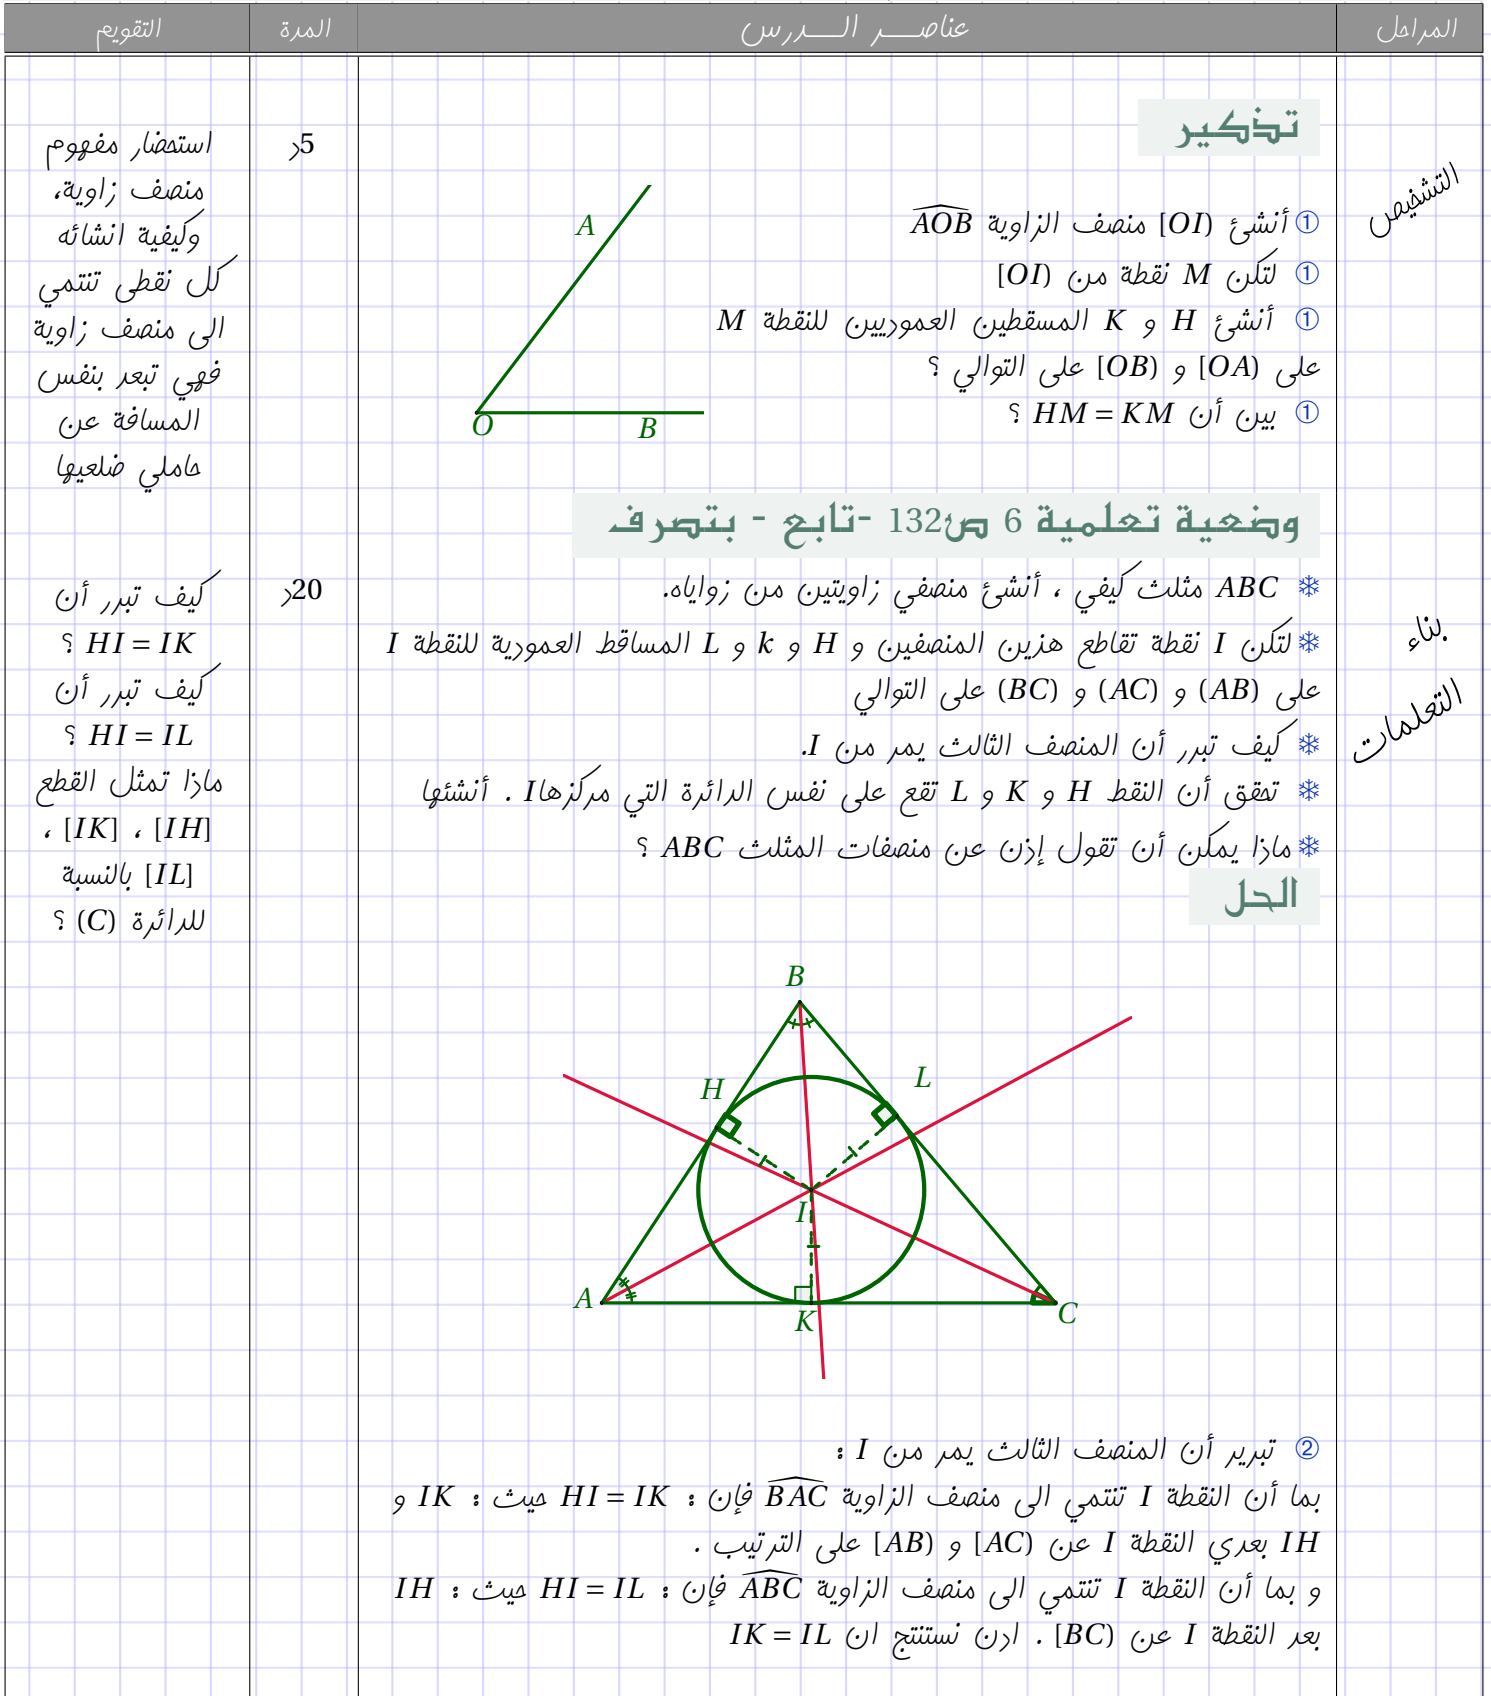 المراحل
عناصـــر الـــدرس
المدة
التقويم
التشخيص
تذكير
① أنشئ [OI) منصف الزاوية AOB
① لتكن M نقطة من [OI)
① أنشئ H و K المسقطين العموديين للنقطة M
على [OA) و [OB) على التوالي ؟
① بين أن HM = KM ؟
A
O
B
5د
استحضار مفهوم
منصف زاوية،
وكيفية انشائه
كل نقطى تنتمي
الى منصف زاوية
فهي تبعد بنفس
المسافة عن
حاملي ضلعيها
بناء
التعلمات
وضعية تعلمية 6 ص132 -تابع - بتصرف
❄ ABC مثلث كيفي ، أنشئ منصفي زاويتين من زواياه.
❄ لتكن I نقطة تقاطع هذين المنصفين و H و k و L المساقط العمودية للنقطة I
على (AB) و (AC) و (BC) على التوالي
❄ كيف تبرر أن المنصف الثالث يمر من I.
❄ تحقق أن النقط H و K و L تقع على نفس الدائرة التي مركزهاI . أنشئها
❄ ماذا يمكن أن تقول إذن عن منصفات المثلث ABC ؟
20د
كيف تبرر أن
HI = IK ؟
كيف تبرر أن
HI = IL ؟
ماذا تمثل القطع
[IH] ، [IK] ،
[IL] بالنسبة
للدائرة (C) ؟
الحل
B
H
L
I
A
K
C
② تبرير أن المنصف الثالث يمر من I :
بما أن النقطة I تنتمي الى منصف الزاوية BAC فإن : HI = IK حيث : IK و
IH بعدي النقطة I عن [AC) و [AB) على الترتيب .
و بما أن النقطة I تنتمي الى منصف الزاوية ABC فإن : HI = IL حيث : IH
بعد النقطة I عن [BC) . ادن نستنتج ان IK = IL